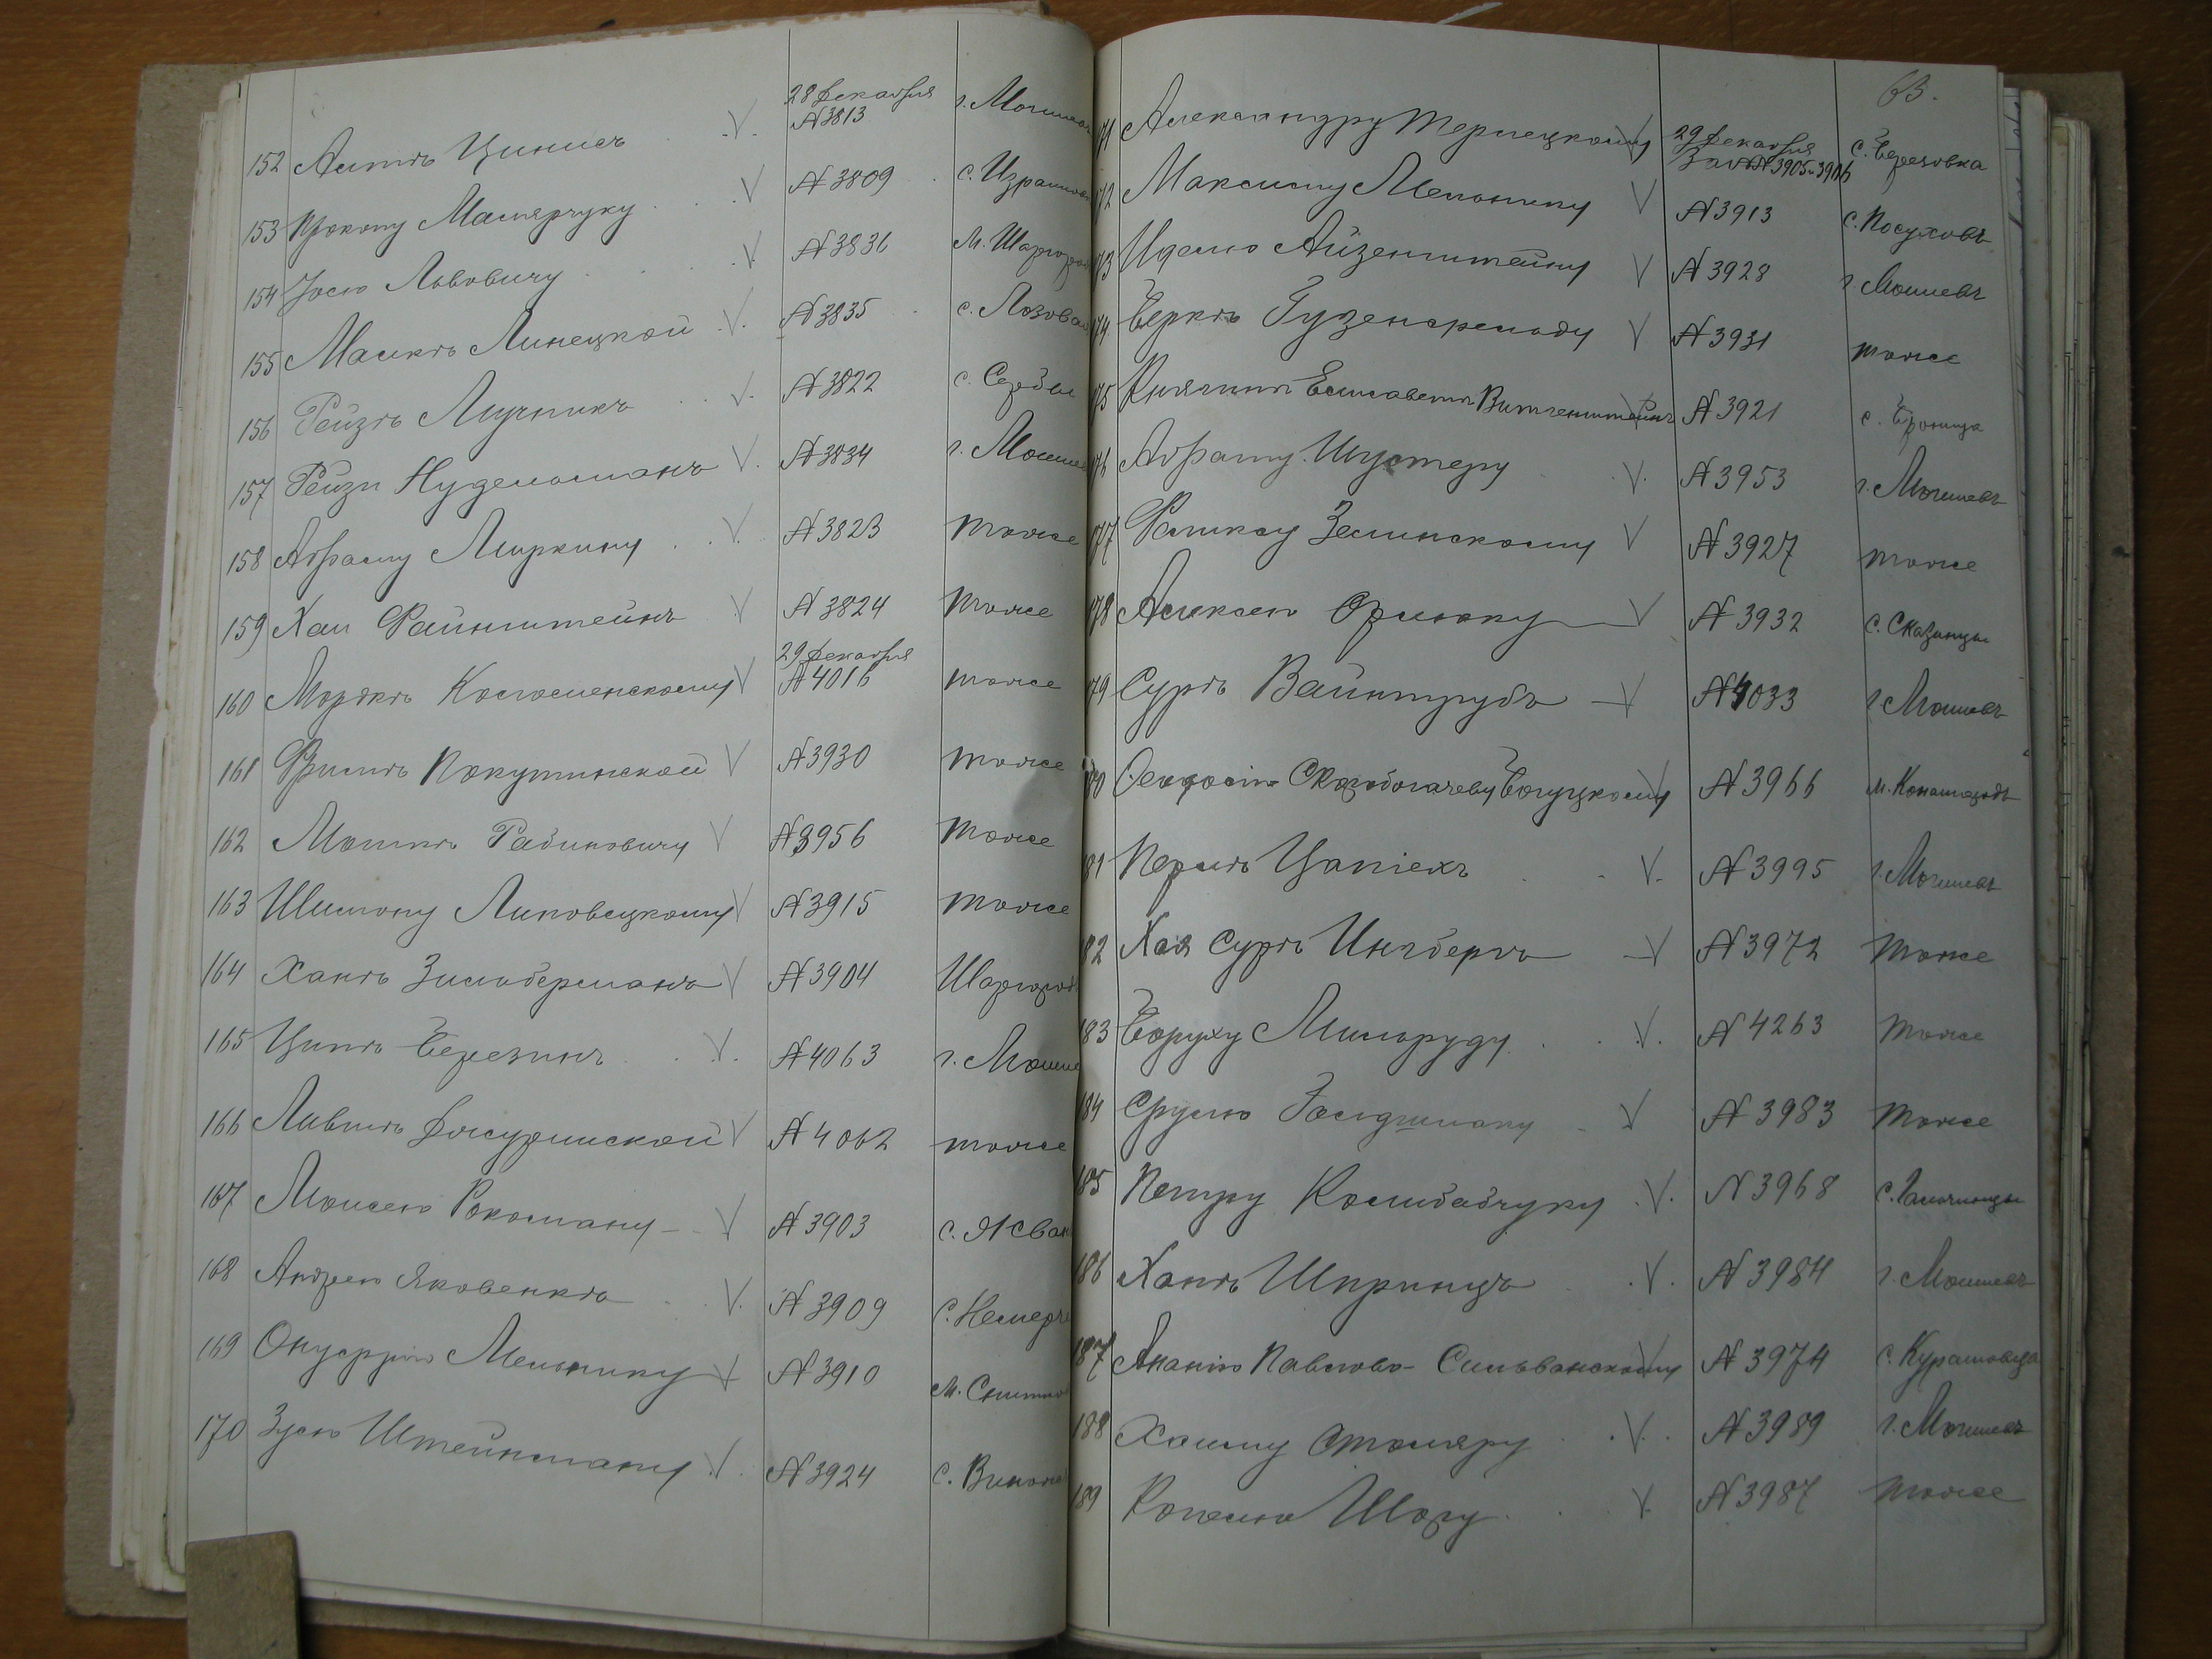 28 декабря г. Могилев
152 Антъ Циписъ V. N 3813
153 Прокопу Малярчуку V N 3809 с. Израиловка
154 Зосю Львовичу V N 3836 м. Шаргород
155 Малкѣ Линецкой V. N 3835 с. Лозовая
156 Рейзѣ Лучникъ V. N 3822 с.
157 Рейзи Нудельманъ V. N 3834 г. Могилев
158 Абраму Миркину V. N 3823 тоже
159 Хаи Файнштейнъ V N 3824 тоже
29 декабря
160 Мордкѣ Космоленскому V N 4016 тоже
161 Фримѣ Покутинской V N 3930 тоже
162 Мошкѣ Рабиновичу V N 3956 тоже
163 Шимону Липовецкому V N 3915 тоже
164 Ханѣ Зильберманъ V N 3904 Шаргород
165 Ципѣ Березинъ V. N 4063 г. Могиле
166 Лившѣ V N 4062 тоже
167 Моисею Рокоману V N 3903 с.
168 Андрею Яковенкѣ V. N 3909 с. Немерче
169 Онуфрію Мельнику V N 3910 м. Снитков
170 Зусю Штейнману V. N 3924 с. Винож
63.
71 Александру Терлецкому V 29 декабря за NN 3905 и 3906 с. Березовка
72 Максиму Мельнику V N 3913 с. Посуховъ
73 Иделю Айзенштейну V N 3928 г. Могилевъ
74 Беркѣ Гузенфельду V N 3931 тоже
75 Княгинѣ Елисаветѣ Витгенштейнъ N 3921 с. Броница
76 Абраму Шустеру V. N 3953 г. Могилевъ
177 Феликсу Зелинскому V N 3927 тоже
178 Алексею Орлюку V N 3932 с. Сказинцы
79 Сурѣ Вайнтрубъ V N 4033 г. Могилевъ
80 Феодосію Скоробогачеву Богуцкому N 3966 м. Копайгородъ
81 Перлѣ Цапіехъ V. N 3995 г. Могилевъ
82 Хая Сурѣ Ингберъ V N 3972 тоже
83 Боруху Мильруду V. N 4263 тоже
84 Срулю Гольдшману V N 3983 тоже
185 Петру Колибабчуку V. N 3968 с. Гальчинцы
186 Ханѣ Шпринцъ V. N 3984 г. Могилевъ
187 Ананію Павлово-Сильванскому N 3974 с. Курашовца
188 Хаиму Столяру V. N 3989 г. Могилевъ
189 Копелю Шору V. N 3987 тоже